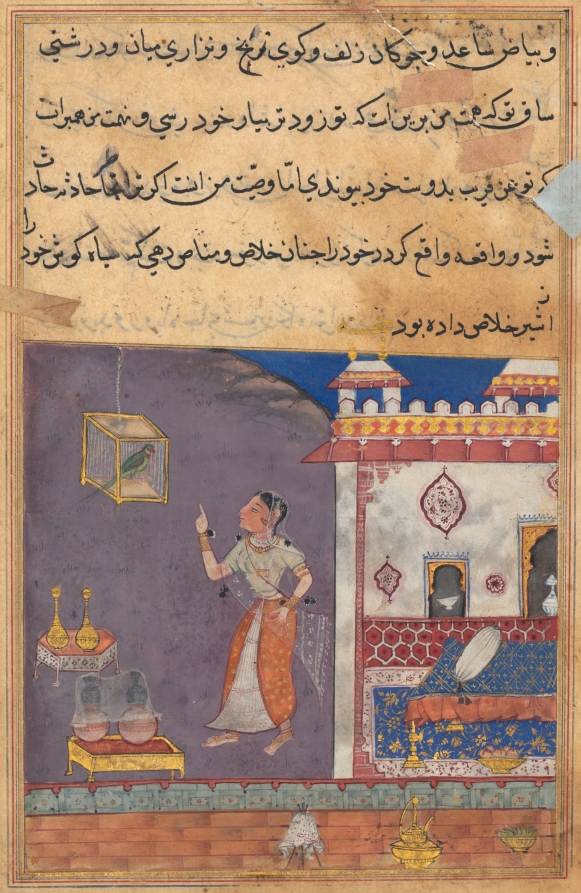 و بیاض ساعد و چوکان زلف و کوی زنخ و نزاری میان و درشتی
ساق تو که همت من برین است که تو زود تر بیار خود رسی و نهمت من همبران است
که تو عن قریب بدوست خود پیوندی اما وصیت من انست اکر ترا حادثه حادث
شود و واقعه واقع کردد خود را چنان خلاص و مناص دهی که سیاه کوش خود را
از شیر خلاص داده بود